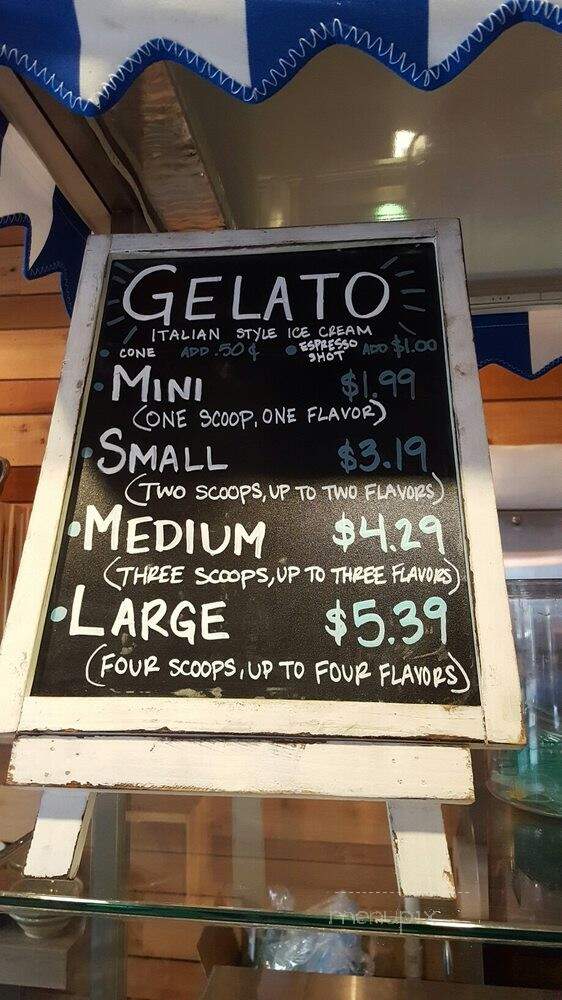 GELATO
ITALIAN STYLE ICE CREAM
• CONE ADD .50¢ • ESPRESSO SHOT ADD $1.00
• MINI $1.99
(ONE SCOOP, ONE FLAVOR)
• SMALL $3.19
(TWO SCOOPS, UP TO TWO FLAVORS)
• MEDIUM $4.29
(THREE SCOOPS, UP TO THREE FLAVORS)
• LARGE $5.39
(FOUR SCOOPS, UP TO FOUR FLAVORS)
menupix